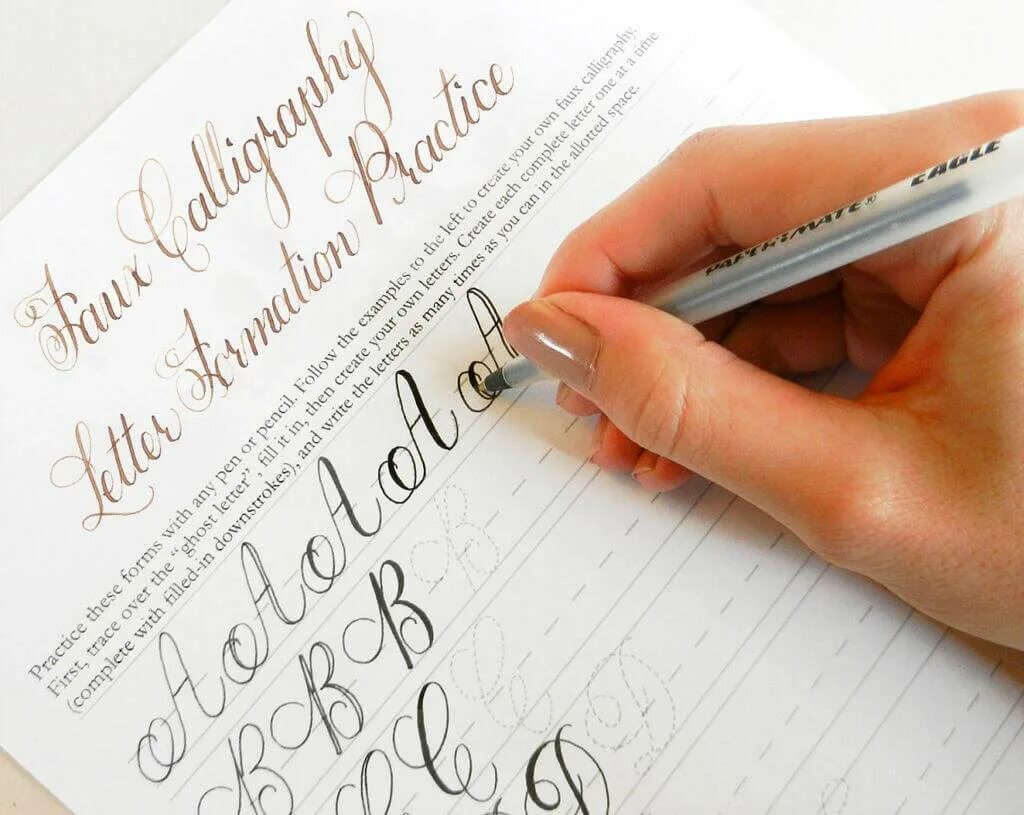 Faux Calligraphy
Letter Formation Practice
Practice these forms with any pen or pencil. Follow the examples to the left to create your own faux calligraphy.
First, trace over the “ghost letter”, fill it in, then create your own letters. Create each complete letter one at a time
(complete with filled-in downstrokes), and write the letters as many times as you can in the allotted space.
A A A A A
B B B B
C C C
D D
PAPER:MATE® EAGLE